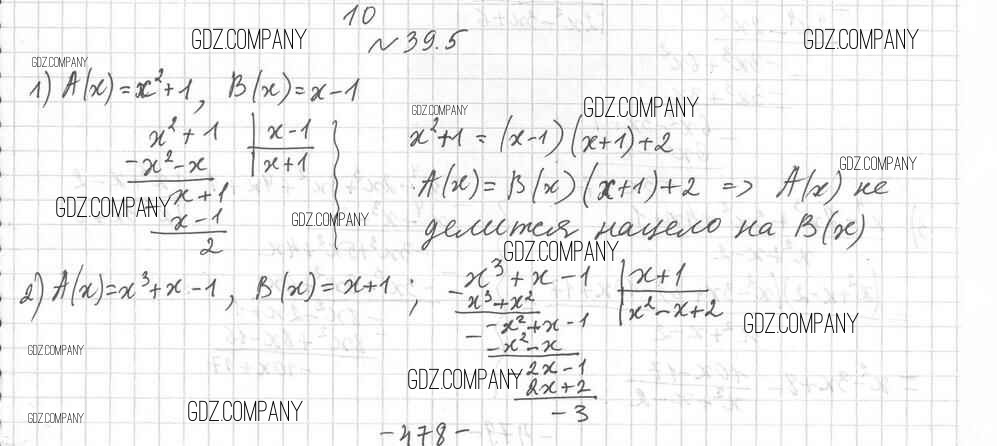 10
№39.5
GDZ.COMPANY
GDZ.COMPANY
GDZ.COMPANY
1) A(x)=x²+1, B(x)=x-1
x²+1 | x-1
-x²-x | x+1
x+1
- x-1
2
GDZ.COMPANY
GDZ.COMPANY
x²+1=(x-1)(x+1)+2
GDZ.COMPANY
A(x)=B(x)(x+1)+2 => A(x) не
делится нацело на B(x)
GDZ.COMPANY
GDZ.COMPANY
GDZ.COMPANY
2) A(x)=x³+x-1, B(x)=x+1;
x³+x-1 | x+1
- x³+x² | x²-x+2
-x²+x-1
- -x²-x
2x-1
- 2x+2
-3
GDZ.COMPANY
GDZ.COMPANY
GDZ.COMPANY
GDZ.COMPANY
GDZ.COMPANY
-478-